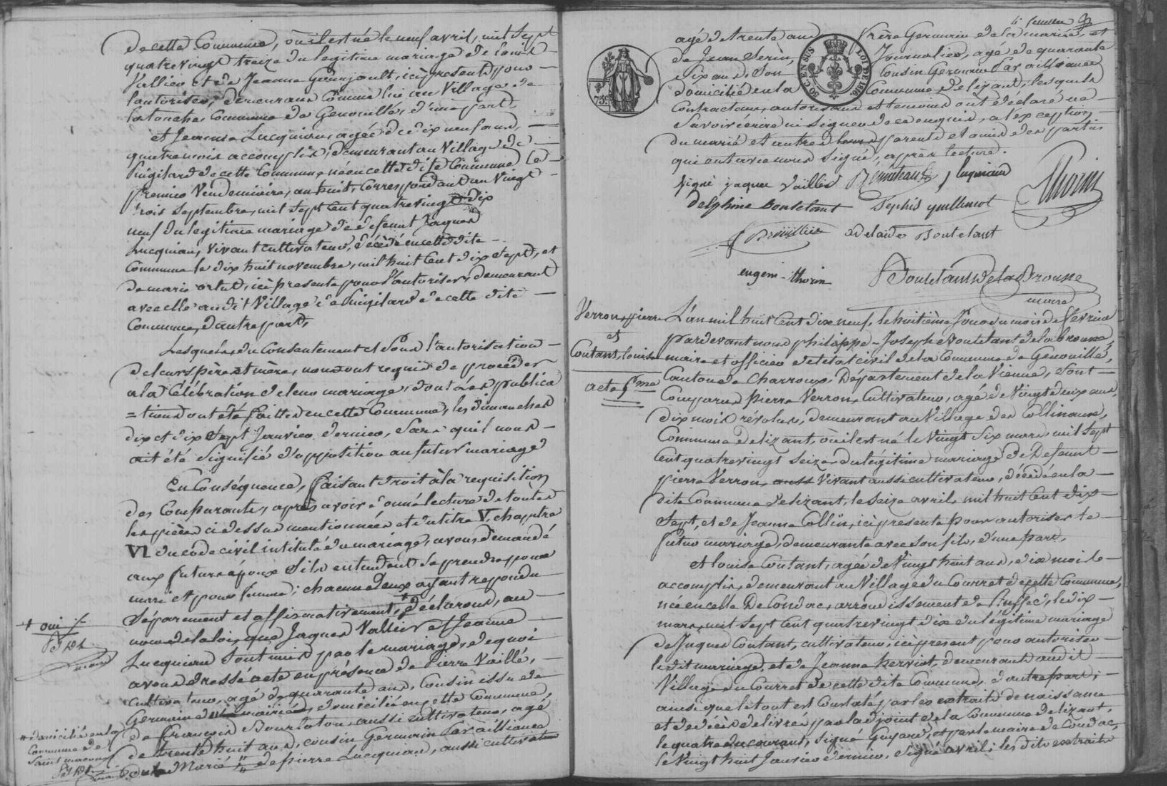 de cette Commune, où il est né le neuf avril, mil Sept
quatre vingt treize du légitime mariage de Louis
Vallier et de Jeanne Guingault, ici présente pour
l'autoriser, demeurant Commun lieu au Village de
Commune de Genouillé, d'une part
et Jeanne Lucquiau, agée de dix neuf ans,
quatre mois accomplis, demeurant au Village de
Puigilard de cette Commune née en cette dite Commune le
premier Vendemiaire, an huit, Correspondant au Vingt
trois Septembre, mil Sept Cent quatre vingt dix
neuf du légitime mariage de défunt Jaques
Lucquiau, vivant cultivateur, décédé en cette dite
Commune le dix huit novembre, mil huit Cent dix Sept, et
de marie ici présente pour l'autoriser, demeurant
avec elle audit Village de Puigilard de cette dite
Commune, d'autre part,
Lesquels, du Consentement et Pour l'autorisation
de leurs père et mere, nous ont requis de procéder
à la Célébration de leur mariage, dont les publica
=tions ont été faites en cette Commune, les dimanches
dix et dix Sept Janvier dernier, Sans qu'il nous
ait été Signifié d'opposition au futur mariage
En Conséquence, faisant droit à la requisition
des Comparants, après avoir donné lecture de toutes
les pièces ci dessus mentionnées et du titre V, chapitre
VI du code civil intitulé du mariage, avons demandé
aux futurs époux S'ils entendent Se prendre pour
mari et pour femme; chacun d'eux ayant repondu
Séparément et affirmativement + déclarons, au
nom de la loi, que Jaques Vallier et Jeanne
Lucquiau Sont unis par le mariage, de quoi
avons dressé acte en présence de Pierre Vaillé,
Cultivateur, agé de quarante ans, cousin issu de
Germain domicilié en cette Commune,
de François aussi cultivateur, agé
de trente huit ans, cousin Germain par alliance
Marié de pierre Lucquiau, aussi cultivateur
+ oui
domicilié en la
Commune de
Saint
agé de trente ans frère Germain de la mariée, et
de Jean Journalier, agé de quarante
Six ans Son Cousin Germain par alliance
domicilié en la Commune de Lizant, lesquels
Contractans, autorisans et temoins ont déclaré ne
Savoir écrire ni Signer de ce enquis, à l'exception
du marié et autres parents et amis des parties
qui ont avec nous Signé, après lecture.
Signé jaques Vaillés
delphine Boutelant Sophie
adelaide Boutelant
eugeni thorin
Boutelant de la Brousse
maire
Verron, pierre
et
Coutant, louise
acte 6me
L'an mil huit Cent dix neuf, le huitième Jour du mois de Février
pardevant nous philippe-Joseph Boutelant de la brousse,
maire et officier de l'état civil de la Commune de Genouillé,
Canton de Charroux, Département de la Vienne, Sont
Comparus Pierre Verron, Cultivateur, agé de Vingt deux ans
dix mois révolus, demeurant au Village de Collinaud,
Commune de Lizant, où il est né le Vingt Six mars mil Sept
Cent quatre vingt Seize du légitime mariage de Défunt
pierre Verron, Vivant aussi cultivateur, décédé en la
dite Commune de Lizant, le Seize avril mil huit Cent dix
Sept, et de Jeanne Collin, ici présente pour autoriser le
futur mariage, demeurante avec Son fils, d'une part,
et louise Coutant, agée de Vingt huit ans, dix mois
accomplis, demeurant au Village du Courret de cette Commune,
née en celle de Condac, arrondissement de Ruffec, le dix
mars, mil Sept Cent quatre vingt dix du légitime mariage
de Jaques Coutant, cultivateur, ici présent pour autoriser
ledit mariage, et de Jeanne herviot, demeurant audit
Village du Courret de cette dite Commune, d'autre part;
ainsi que le tout est Constaté par les extraits de naissance
et de décès délivrés par l'adjoint de la Commune de Lizant,
le quatre du courant, Signé Guyard, et par le maire de Condac,
le Vingt huit Janvier dernier, Signé les dits extraits